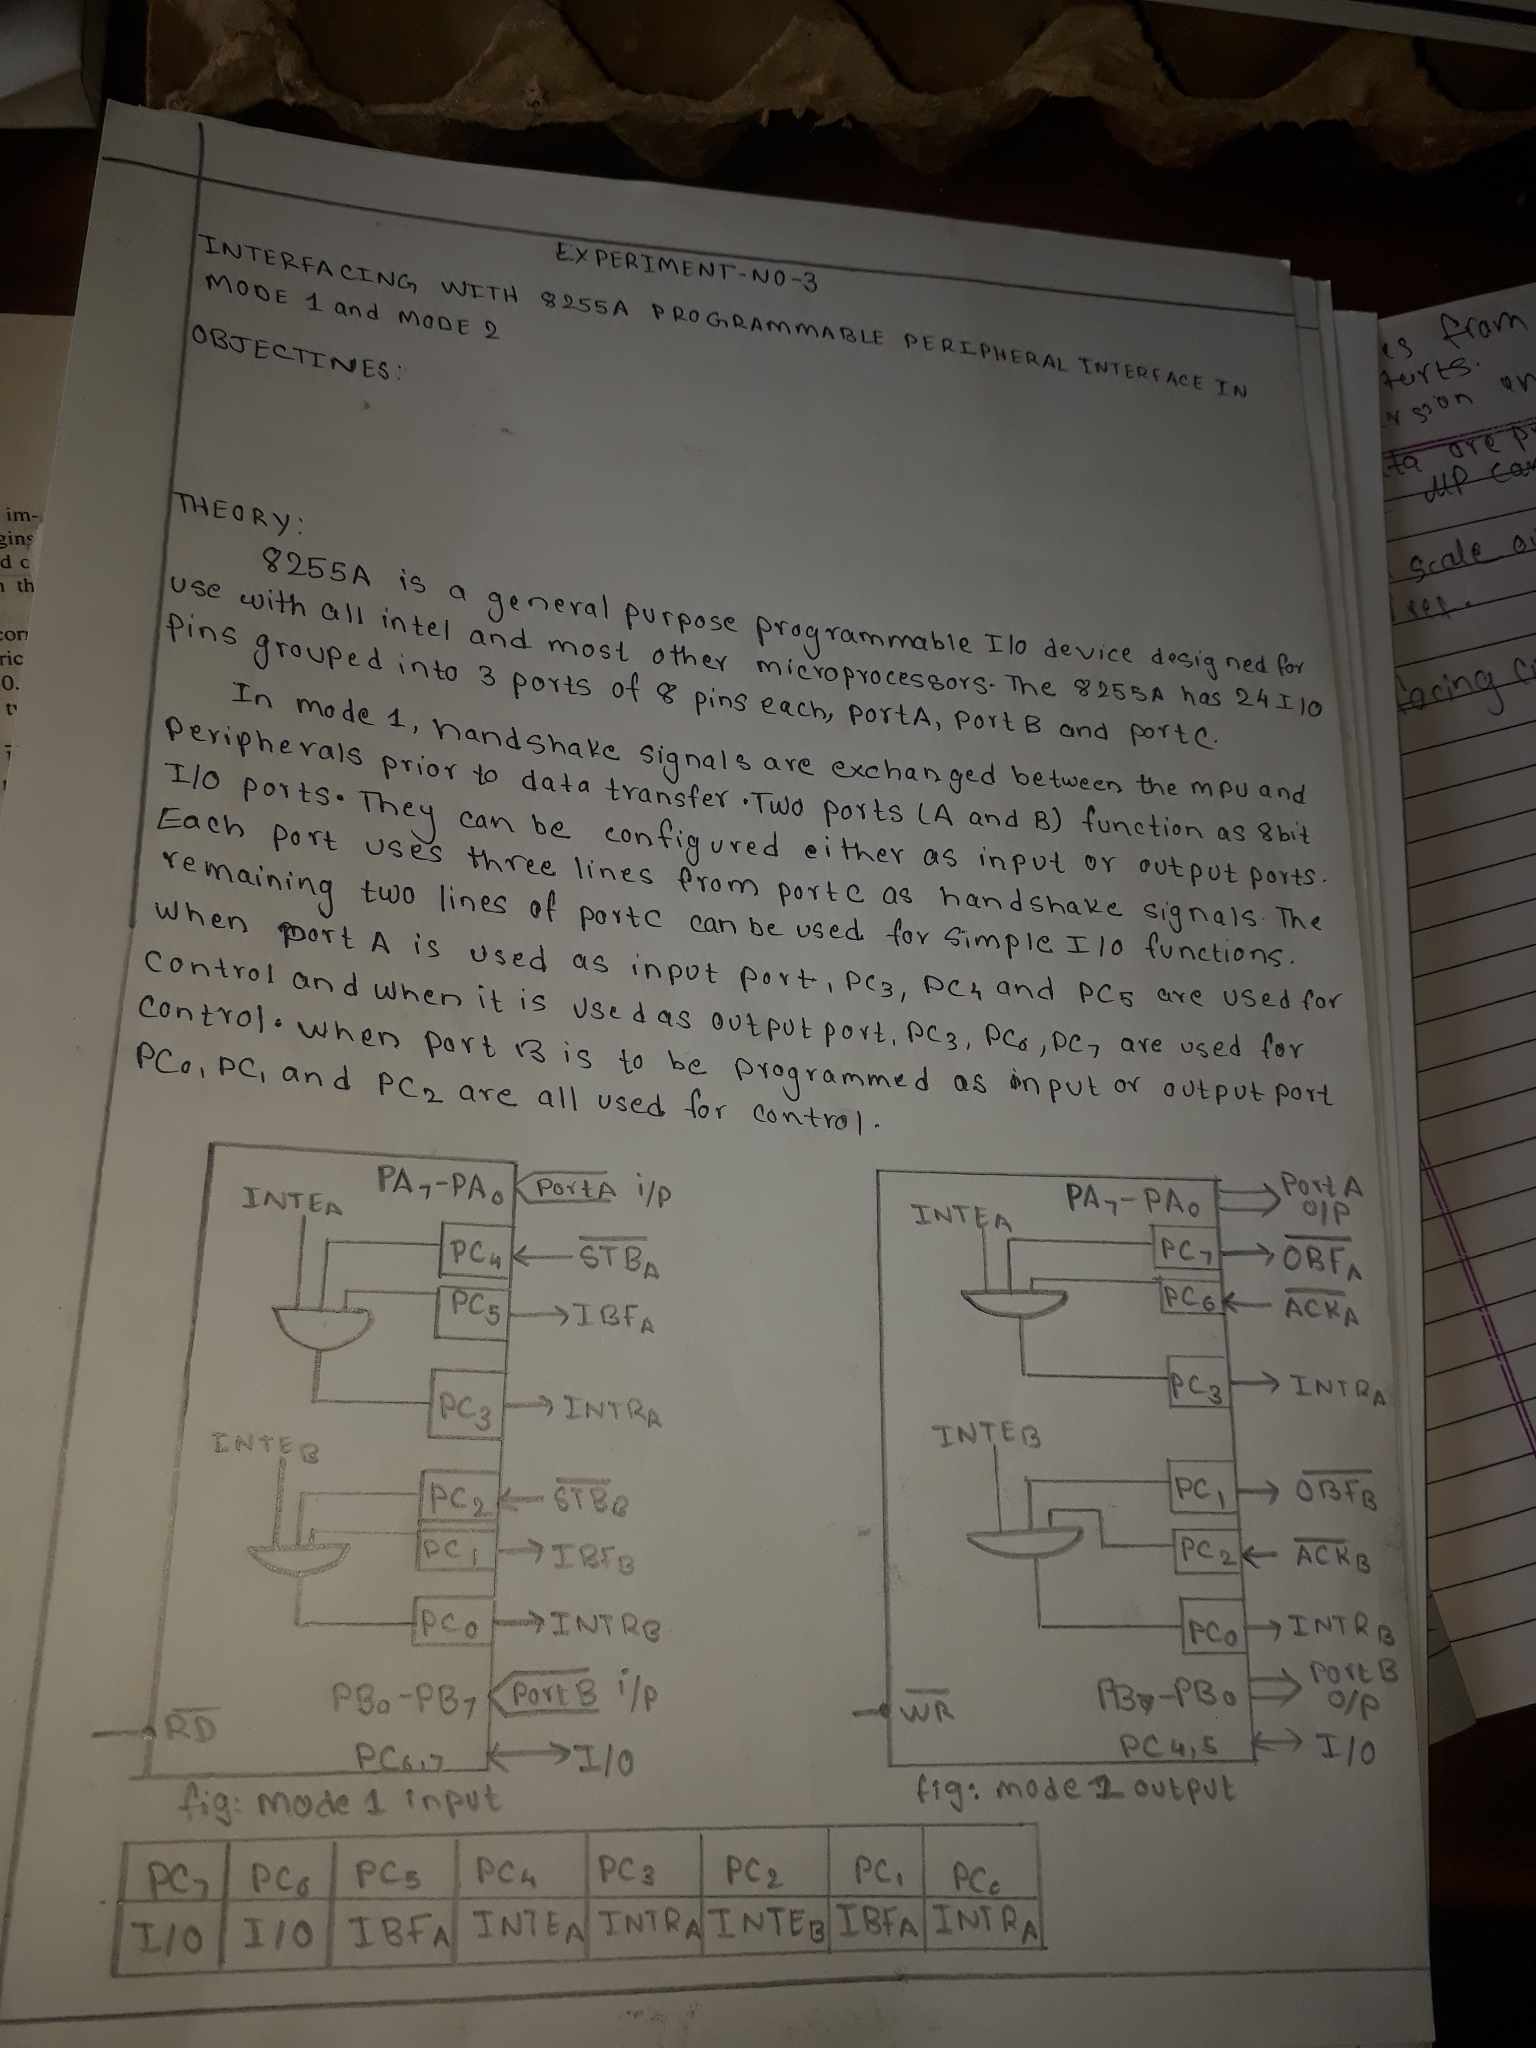 EXPERIMENT-NO-3
INTERFACING WITH 8255A PROGRAMMABLE PERIPHERAL INTERFACE IN
MODE 1 and MODE 2
OBJECTINES:
THEORY:
8255A is a general purpose programmable I/o device designed for
use with all intel and most other microprocessors. The 8255A has 24 I/O
Pins grouped into 3 ports of 8 pins each, portA, port B and port C.
In mode 1, handshake signals are exchanged between the mpu and
Peripherals prior to data transfer. Two ports (A and B) function as 8bit
I/O ports. They can be configured either as input or output ports.
Each port uses three lines from port C as handshake signals. The
remaining two lines of port C can be used for simple I/O functions.
When port A is used as input port, PC3, PC4 and PC5 are used for
Control and when it is used as output port, PC3, PC6, PC7 are used for
Control. When port B is to be programmed as input or output port
PC0, PC1 and PC2 are all used for control.
INTEA
PA7-PA0
PortA i/p
PC4
STBA
PC5
IBFA
PC3
INTRA
INTEB
PC2
STBB
PC1
IBFB
PC0
INTRB
PB0-PB7
Port B i/p
RD
PC6,7
I/O
fig: mode 1 input
INTEA
PA7-PA0
Port A
O/P
PC7
OBFA
PC6
ACKA
PC3
INTRA
INTEB
PC1
OBFB
PC2
ACKB
PC0
INTRB
PB7-PB0
Port B
O/P
WR
PC4,5
I/O
fig: mode 1 output
PC7 PC6 PC5 PC4 PC3 PC2 PC1 PC0
I/O I/O IBFA INTEA INTRA INTEB IBFA INTRA
es from
ta are
MP
scale
facing
im-
gins
d c
th
con
ric
0.